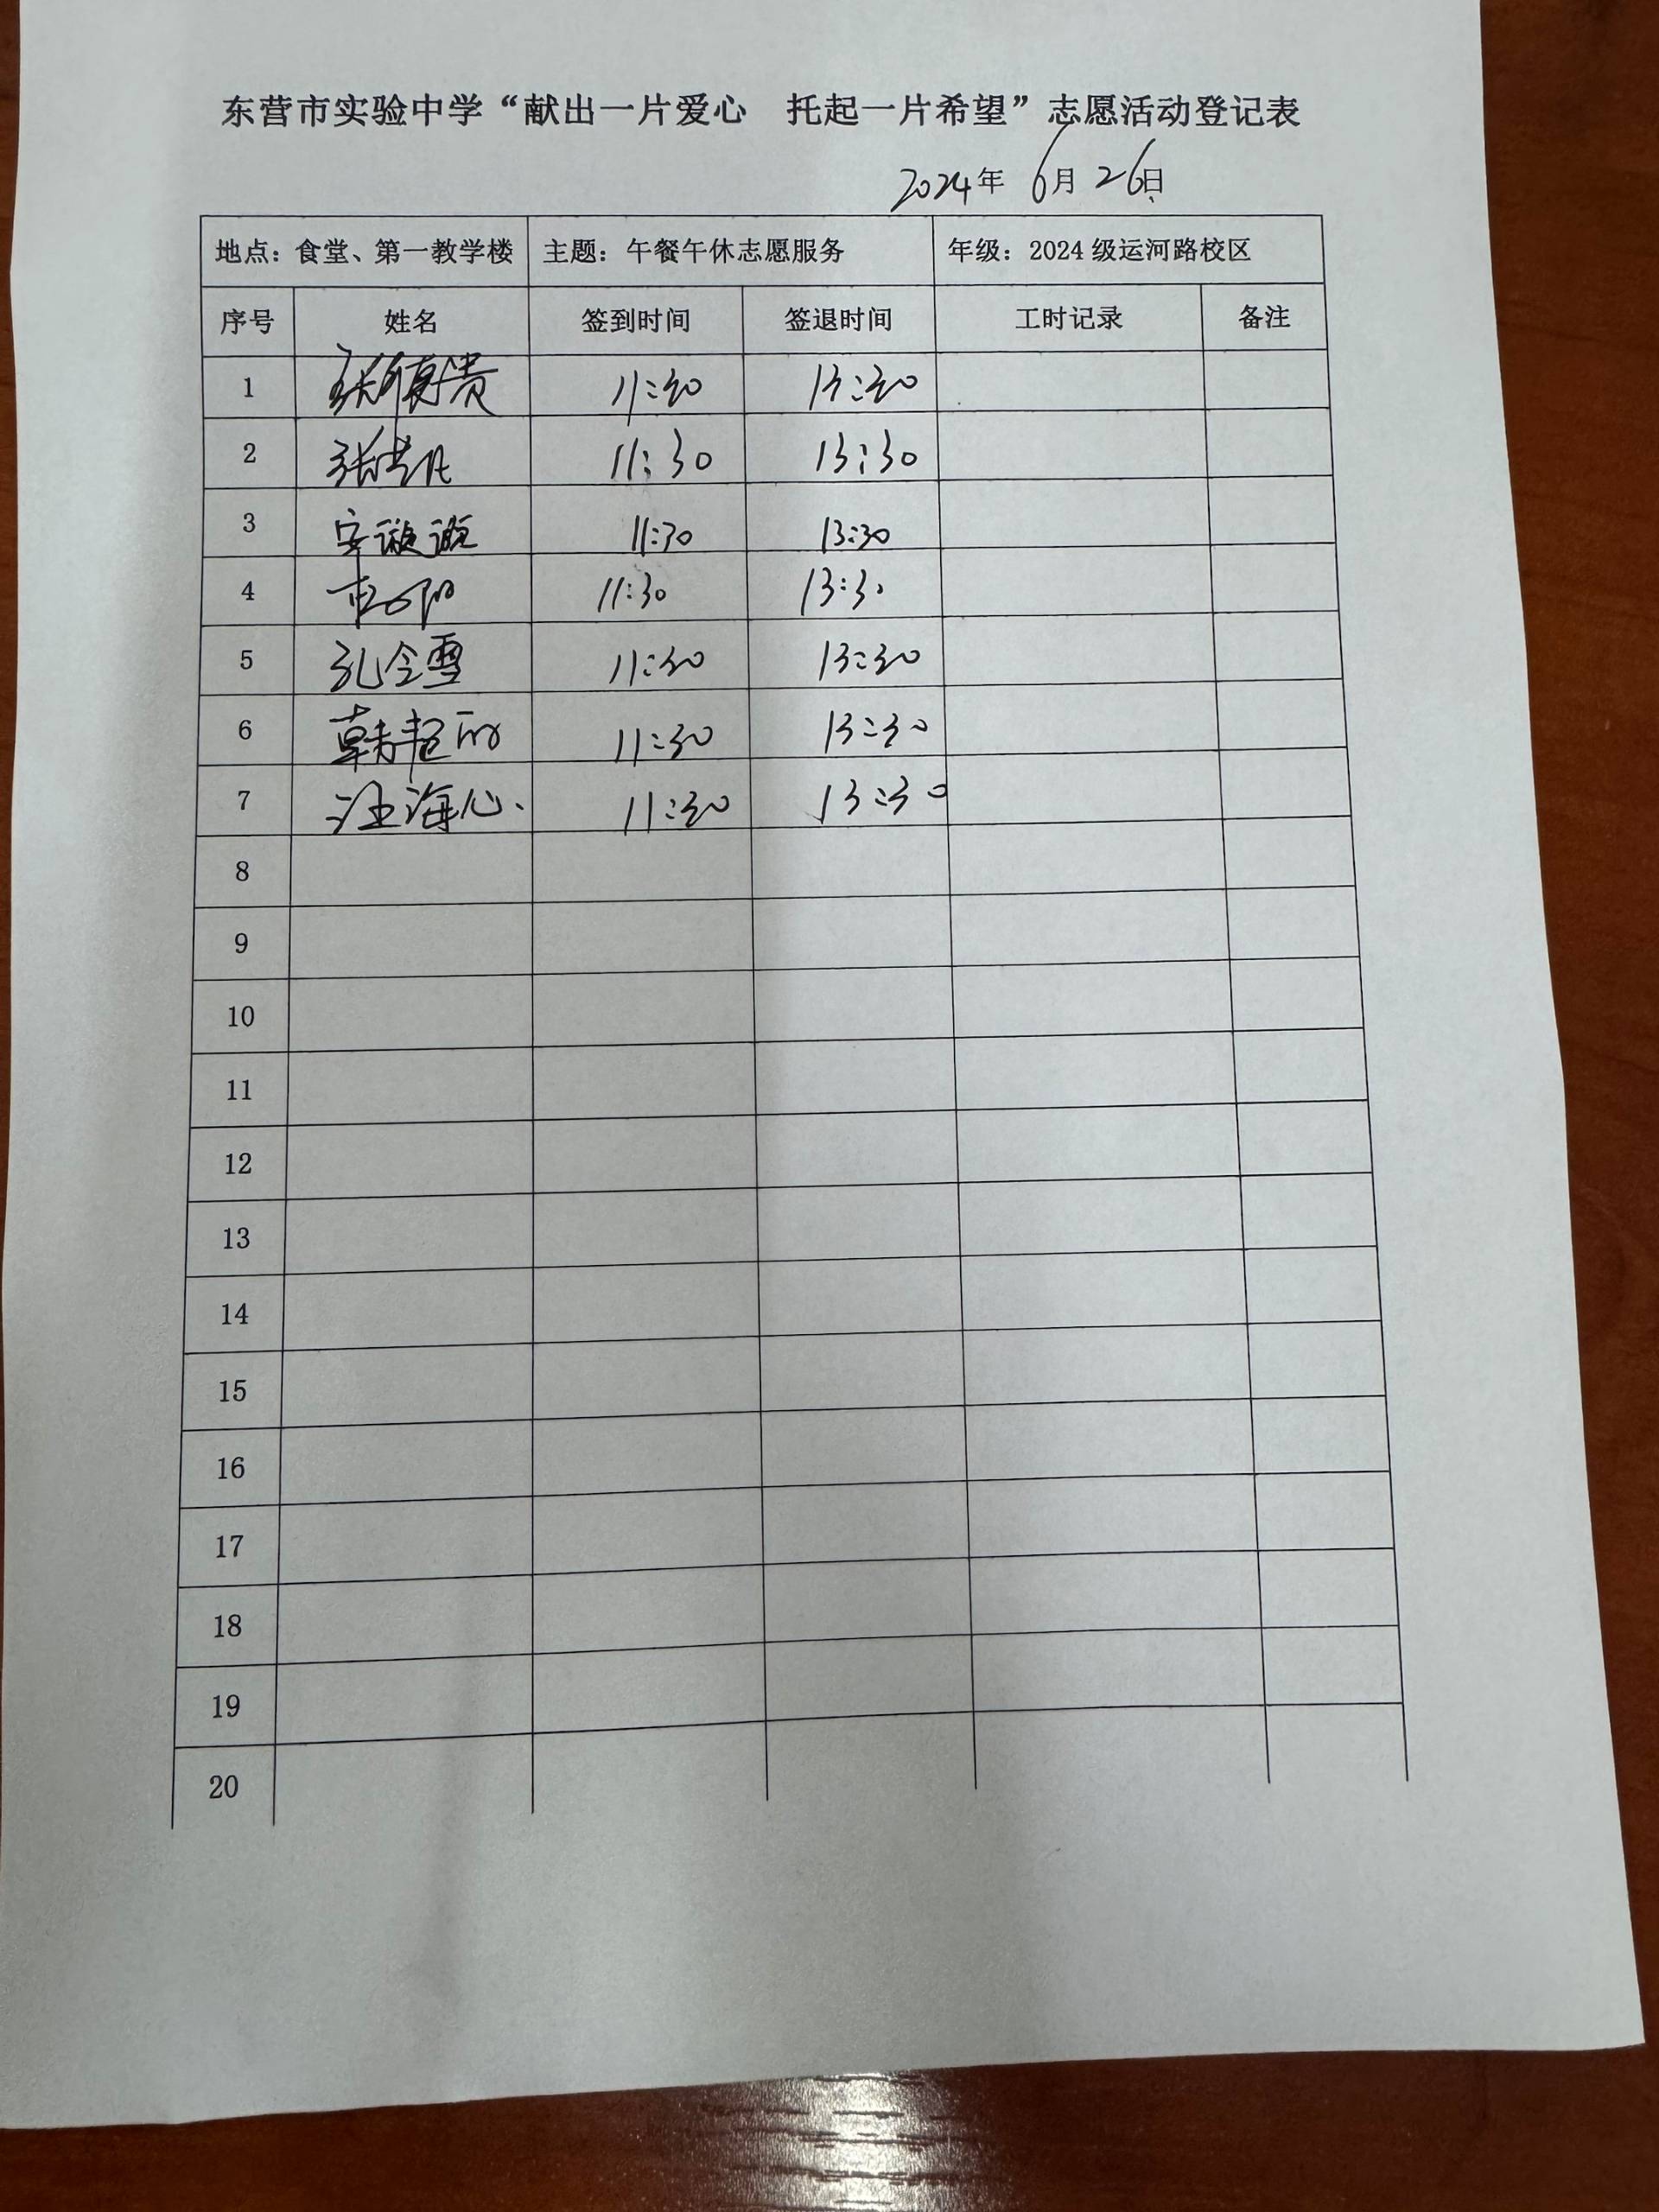 东营市实验中学“献出一片爱心 托起一片希望”志愿活动登记表
2024年 6月 26日
地点：食堂、第一教学楼 主题：午餐午休志愿服务 年级：2024 级运河路校区
序号 姓名 签到时间 签退时间 工时记录 备注
1 张德贵 11:30 13:30
2 张 11:30 13:30
3 安 11:30 13:30
4 11:30 13:30
5 孔令雪 11:30 13:30
6 韩艳丽 11:30 13:30
7 汪海心 11:30 13:30
8
9
10
11
12
13
14
15
16
17
18
19
20